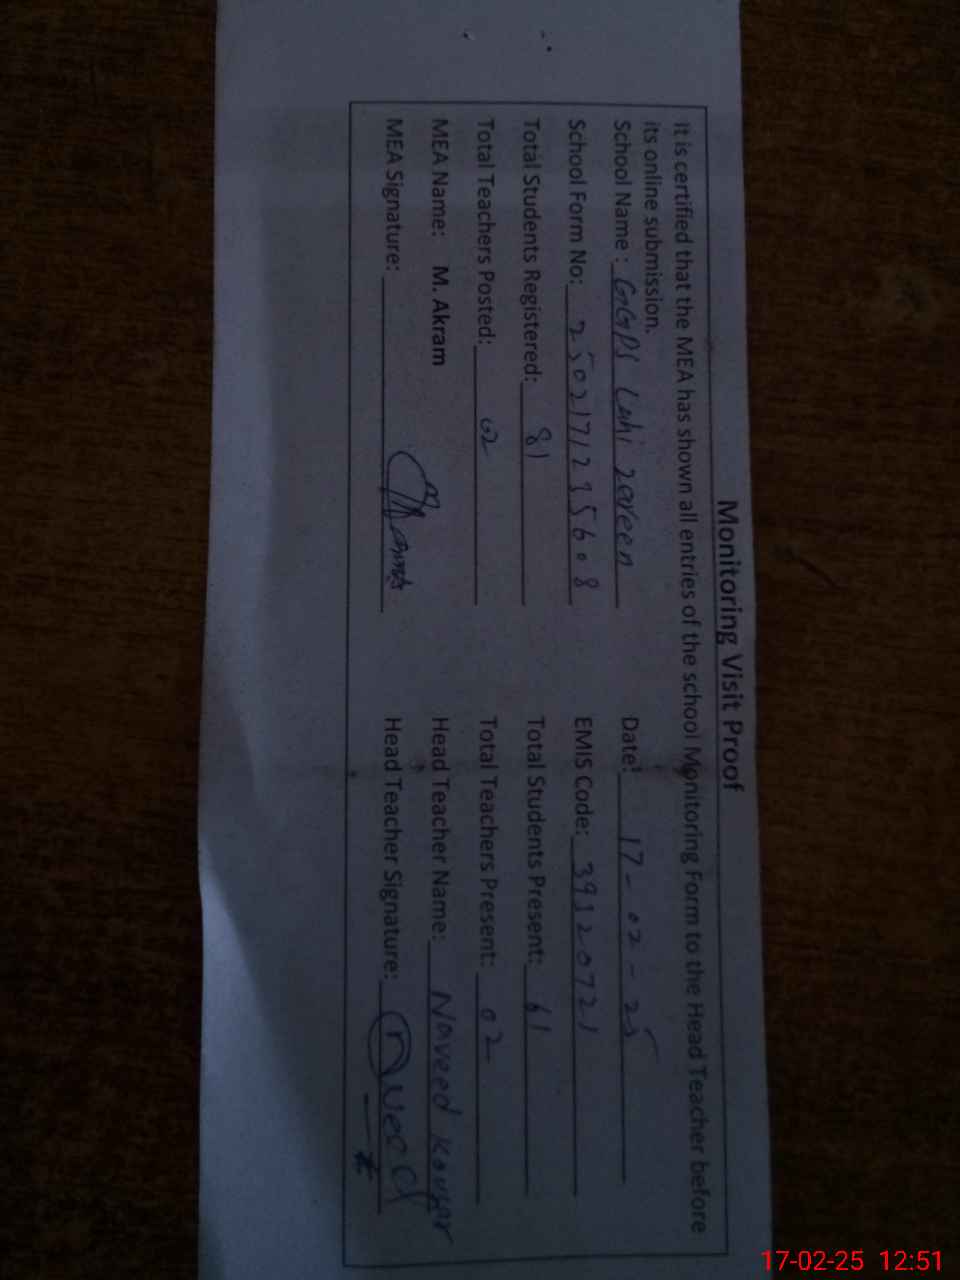 Monitoring Visit Proof
It is certified that the MEA has shown all entries of the school Monitoring Form to the Head Teacher before
its online submission.
School Name : GGPS Lahi Zareen Date: 17-02-25
School Form No: EMIS Code: 39120721
Total Students Registered: 81 Total Students Present: 61
Total Teachers Posted: 02 Total Teachers Present: 02
MEA Name: M. Akram Head Teacher Name: Naveed Kousar
MEA Signature: Head Teacher Signature:
17-02-25 12:51